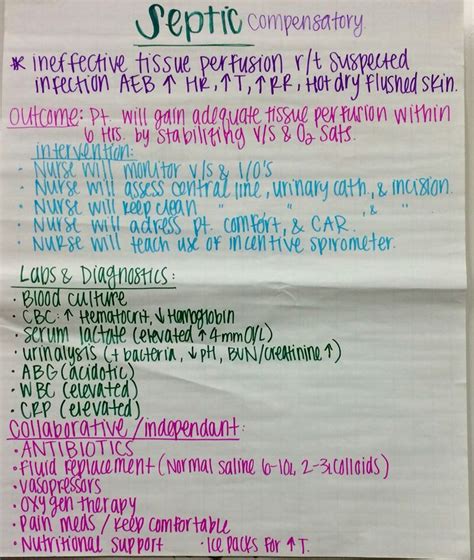 Septic compensatory
* ineffective tissue perfusion r/t suspected
infection AEB ↑ HR, ↑T, ↑RR, Hot dry flushed skin.
Outcome: Pt. will gain adequate tissue perfusion within
6 Hrs. by stabilizing V/S & O2 sats.
intervention:
• Nurse will monitor V/S & I/O's
• Nurse will assess central line, urinary cath, & incision.
• Nurse will keep clean " " , & "
• Nurse will adress pt. comfort, & CAR.
• Nurse will teach use of incentive spirometer.
Labs & Diagnostics:
• Blood culture
• CBC: ↑ Hematocrit, ↓ Hamoglobin
• Serum lactate (elevated ↑ 4mmol/L)
• urinalysis (+ bacteria, ↓ pH, BUN/creatinine ↑)
• ABG (acidotic)
• WBC (elevated)
• CRP (elevated)
Collaborative/independant:
• ANTIBIOTICS
• Fluid replacement (Normal saline 6-10L, 2-3L colloids)
• Vasopressors
• Oxygen therapy
• Pain meds / keep comfortable
• Nutritional support • Ice packs for ↑T.